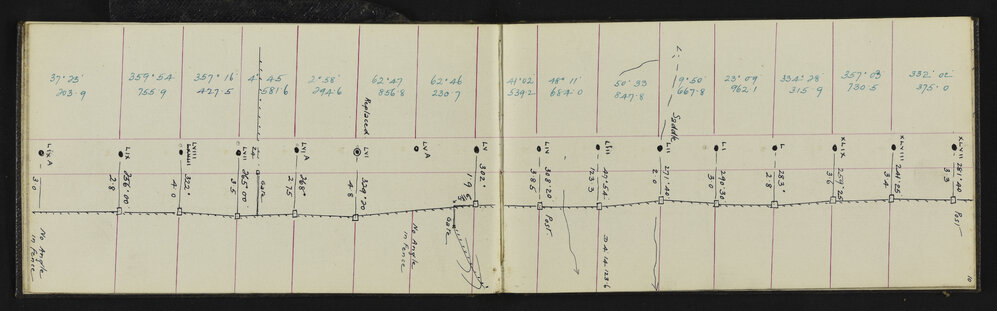 37°25'
203.9
359°54
755.9
357°16
427.5
4° 45
581.6
2°58'
294.6
62°47
856.8
62°46
230.7
41°02
539.2
48°11'
684.0
50°33
847.8
9°50
667.8
23°09
962.1
334°28
315.9
357°03
730.5
332°02'
375.0
Replaced
Saddle
LIXA
LIX
LVIII
LVII
LVIA
LVI
LVA
LV
LIV
LIII
LII
LI
L
XLIX
XLVIII
XLVII
3.0
256°00'
2.8
322°
4.0
265°00'
3.5
Gate
268°
2.75
329°20
4.8
302°
1.9
308°20
3.85
47°54
123.3
271°40
2.0
290°30
3.0
283°
2.8
259°25
3.6
241°25
3.4
281°40
3.3
No Angle
in Fence
No Angle
in Fence
Gate
Post
Post
10